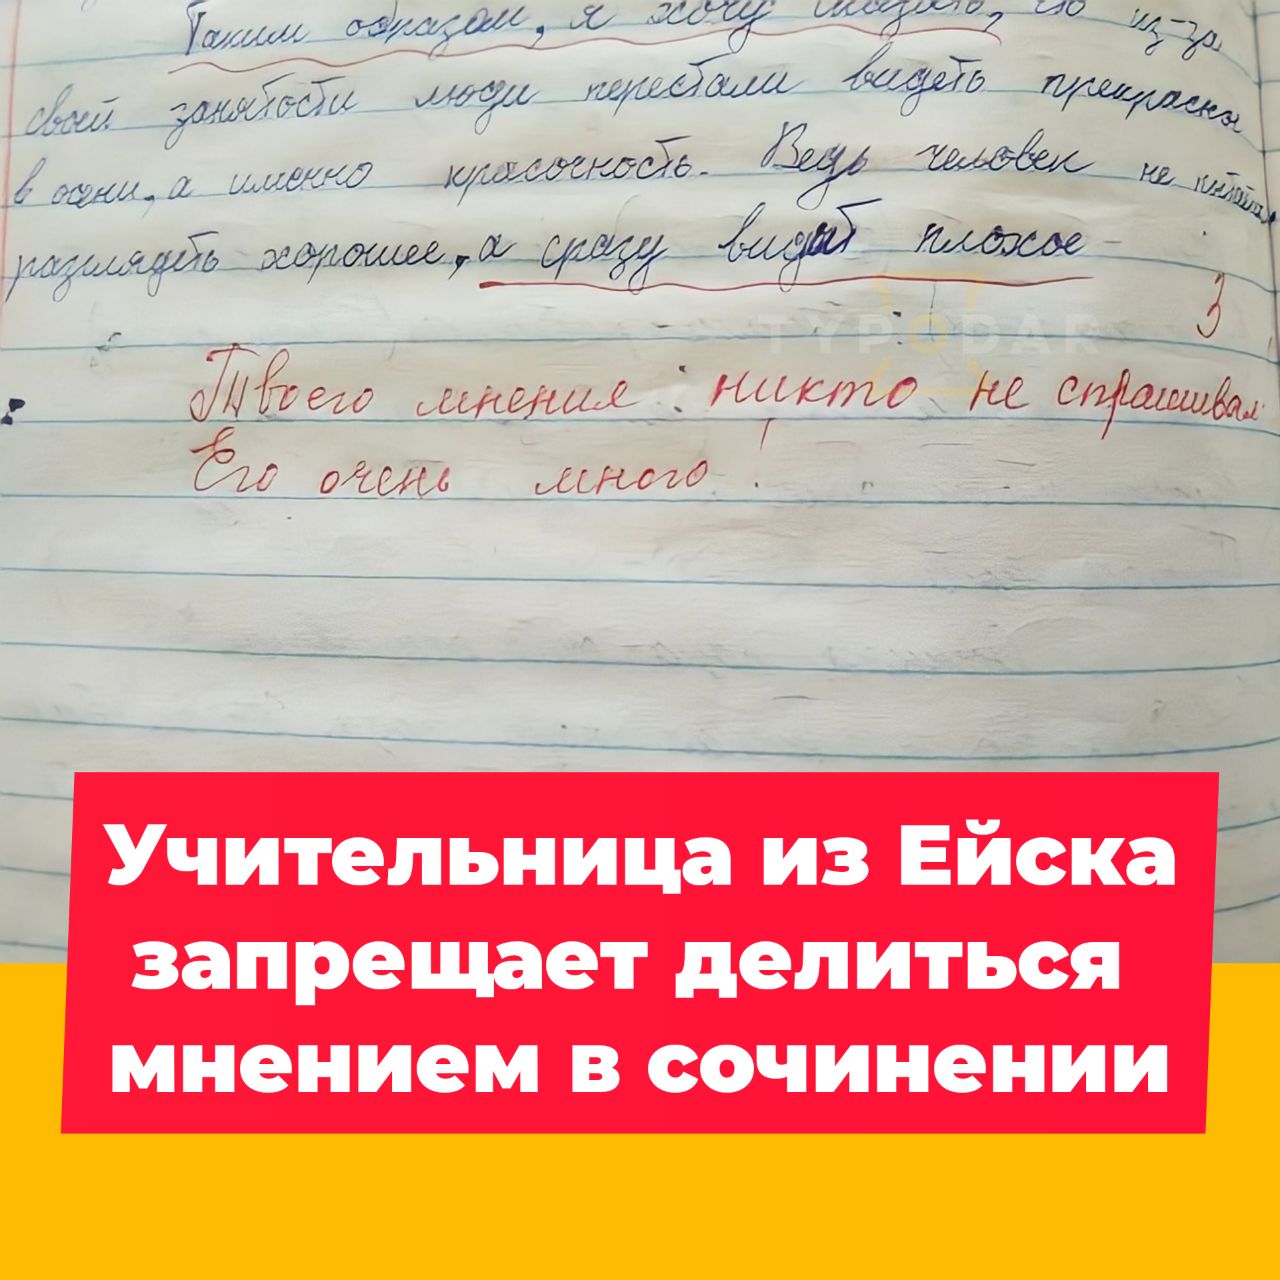 Таким образом, я хочу сказать, что из-за
своей занятости люди перестали видеть прекрасно
в осени, а именно красочность. Ведь человек не пытает
разглядеть хорошее, а сразу видит плохое
3
TYPODAR
Твоего мнения никто не спрашивал
Его очень много!
Учительница из Ейска
запрещает делиться
мнением в сочинении